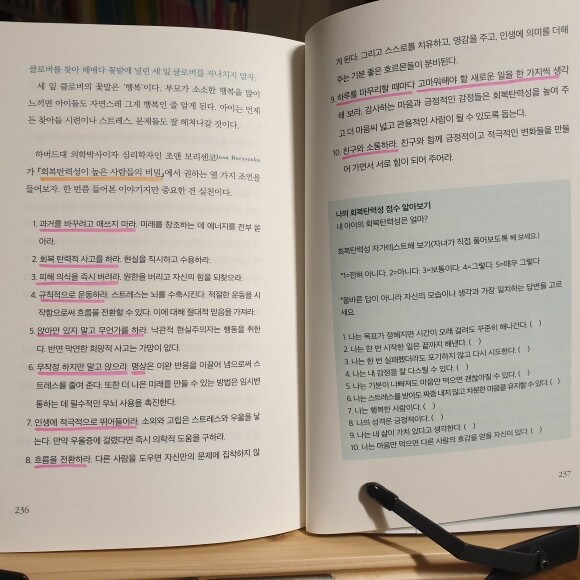 클로버를 찾아 헤매다 꽃말에 널린 세 잎 클로버를 지나치지 말자.
세 잎 클로버의 꽃말은 '행복'이다. 부모가 소소한 행복을 많이
느끼면 아이들도 자연스레 그게 행복인 줄 알게 된다. 아이는 언제
든 찾아올 시련이나 스트레스, 문제들도 잘 헤쳐나갈 것이다.
하버드대 의학박사이자 심리학자인 조앤 보리센코Joan Borysenko
가 『회복탄력성이 높은 사람들의 비밀』에서 권하는 열 가지 조언을
들어보자. 한 번쯤 들어본 이야기지만 중요한 건 실천이다.
1. 과거를 바꾸려고 애쓰지 마라. 미래를 창조하는 데 에너지를 전부 쏟
아라.
2. 회복 탄력적 사고를 하라. 현실을 직시하고 수용하라.
3. 피해 의식을 즉시 버려라. 원한을 버리고 자신의 힘을 되찾으라.
4. 규칙적으로 운동하라. 스트레스는 뇌를 수축시킨다. 적절한 운동을 시
작함으로써 흐름을 전환할 수 있다. 이에 대해 절대적 믿음을 가져라.
5. 앉아만 있지 말고 무언가를 하라. 낙관적 현실주의자는 행동을 취한
다. 반면 막연한 희망적 사고는 가망이 없다.
6. 무작정 하지만 말고 앉으라. 명상은 이완 반응을 이끌어 냄으로써 스
트레스를 줄여 준다. 또한 더 나은 미래를 만들 수 있는 방법은 임시변
통하는 데 필수적인 우뇌 사용을 촉진한다.
7. 인생에 적극적으로 뛰어들어라. 소외와 고립은 스트레스와 우울을 낳
는다. 만약 우울증에 걸렸다면 즉시 의학적 도움을 구하라.
8. 흐름을 전환하라. 다른 사람을 도우면 자신만의 문제에 집착하지 않
236
게 된다. 그리고 스스로를 치유하고, 영감을 주고, 인생에 의미를 더해
주는 기분 좋은 호르몬들이 분비된다.
9. 하루를 마무리할 때마다 고마워해야 할 새로운 일을 한 가지씩 생각
해 보라. 감사하는 마음과 긍정적인 감정들은 회복탄력성을 높여 주
고 더 마음씨 넓고 관용적인 사람이 될 수 있도록 돕는다.
10. 친구와 소통하라. 친구와 함께 긍정적이고 적극적인 변화들을 만들
어 가면서 서로 힘이 되어 주어라.
나의 회복탄력성 점수 알아보기
내 아이의 회복탄력성은 얼마?
회복탄력성 자가테스트해 보기(자녀가 직접 풀어보도록 해 보세요.)
*1=전혀 아니다. 2=아니다. 3=보통이다. 4=그렇다. 5=매우 그렇다
*올바른 답이 아니라 자신의 모습이나 생각과 가장 일치하는 답변을 고르
세요.
1. 나는 목표가 정해지면 시간이 오래 걸려도 꾸준히 해나간다. ( )
2. 나는 한 번 시작한 일은 끝까지 해낸다. ( )
3. 나는 한 번 실패했더라도 포기하지 않고 다시 시도한다. ( )
4. 나는 내 감정을 잘 다스릴 수 있다. ( )
5. 나는 기분이 나빠져도 마음만 먹으면 괜찮아질 수 있다. ( )
6. 나는 스트레스를 받아도 짜증 내지 않고 차분한 마음을 유지할 수 있다. ( )
7. 나는 행복한 사람이다. ( )
8. 나의 성격은 긍정적이다. ( )
9. 나는 내 삶이 가치 있다고 생각한다. ( )
10. 나는 마음만 먹으면 다른 사람의 호감을 얻을 자신이 있다. ( )
237